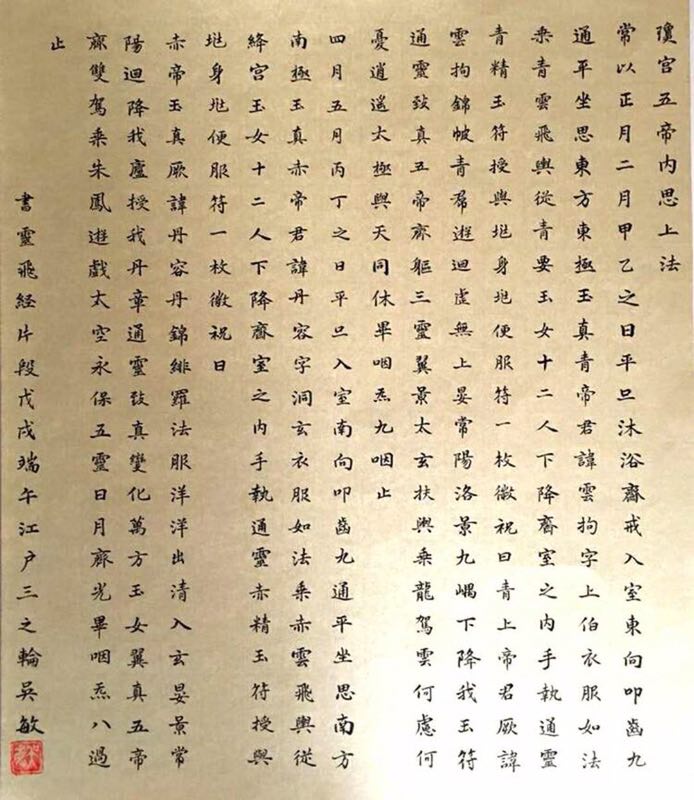 瓊宮五帝内思上法
常以正月二月甲乙之日平旦沐浴齋戒入室東向叩齒九
通平坐思東方東極玉真青帝君諱雲拘字上伯衣服如法
乘青雲飛輿從青要玉女十二人下降齋室之内手執通靈
青精玉符授與兆身兆便服符一枚微祝曰青上帝君厥諱
雲拘錦帔青帬遊迴虛無上晏常陽洛景九嵎下降我玉符
通靈致真五帝齊軀三靈翼景太玄扶輿乘龍駕雲何慮何
憂逍遙太極與天同休畢咽炁九咽止
四月五月丙丁之日平旦入室南向叩齒九通平坐思南方
南極玉真赤帝君諱丹容字洞玄衣服如法乘赤雲飛輿從
絳宮玉女十二人下降齋室之内手執通靈赤精玉符授與
兆身兆便服符一枚微祝曰
赤帝玉真厥諱丹容丹錦緋羅法服洋洋出清入玄晏景常
陽迴降我廬授我丹章通靈致真變化萬方玉女翼真五帝
齊雙駕乘朱鳳遊戲太空永保五靈日月齊光畢咽炁八過
止
書靈飛經片段戊戌端午江户三之輪吳敏